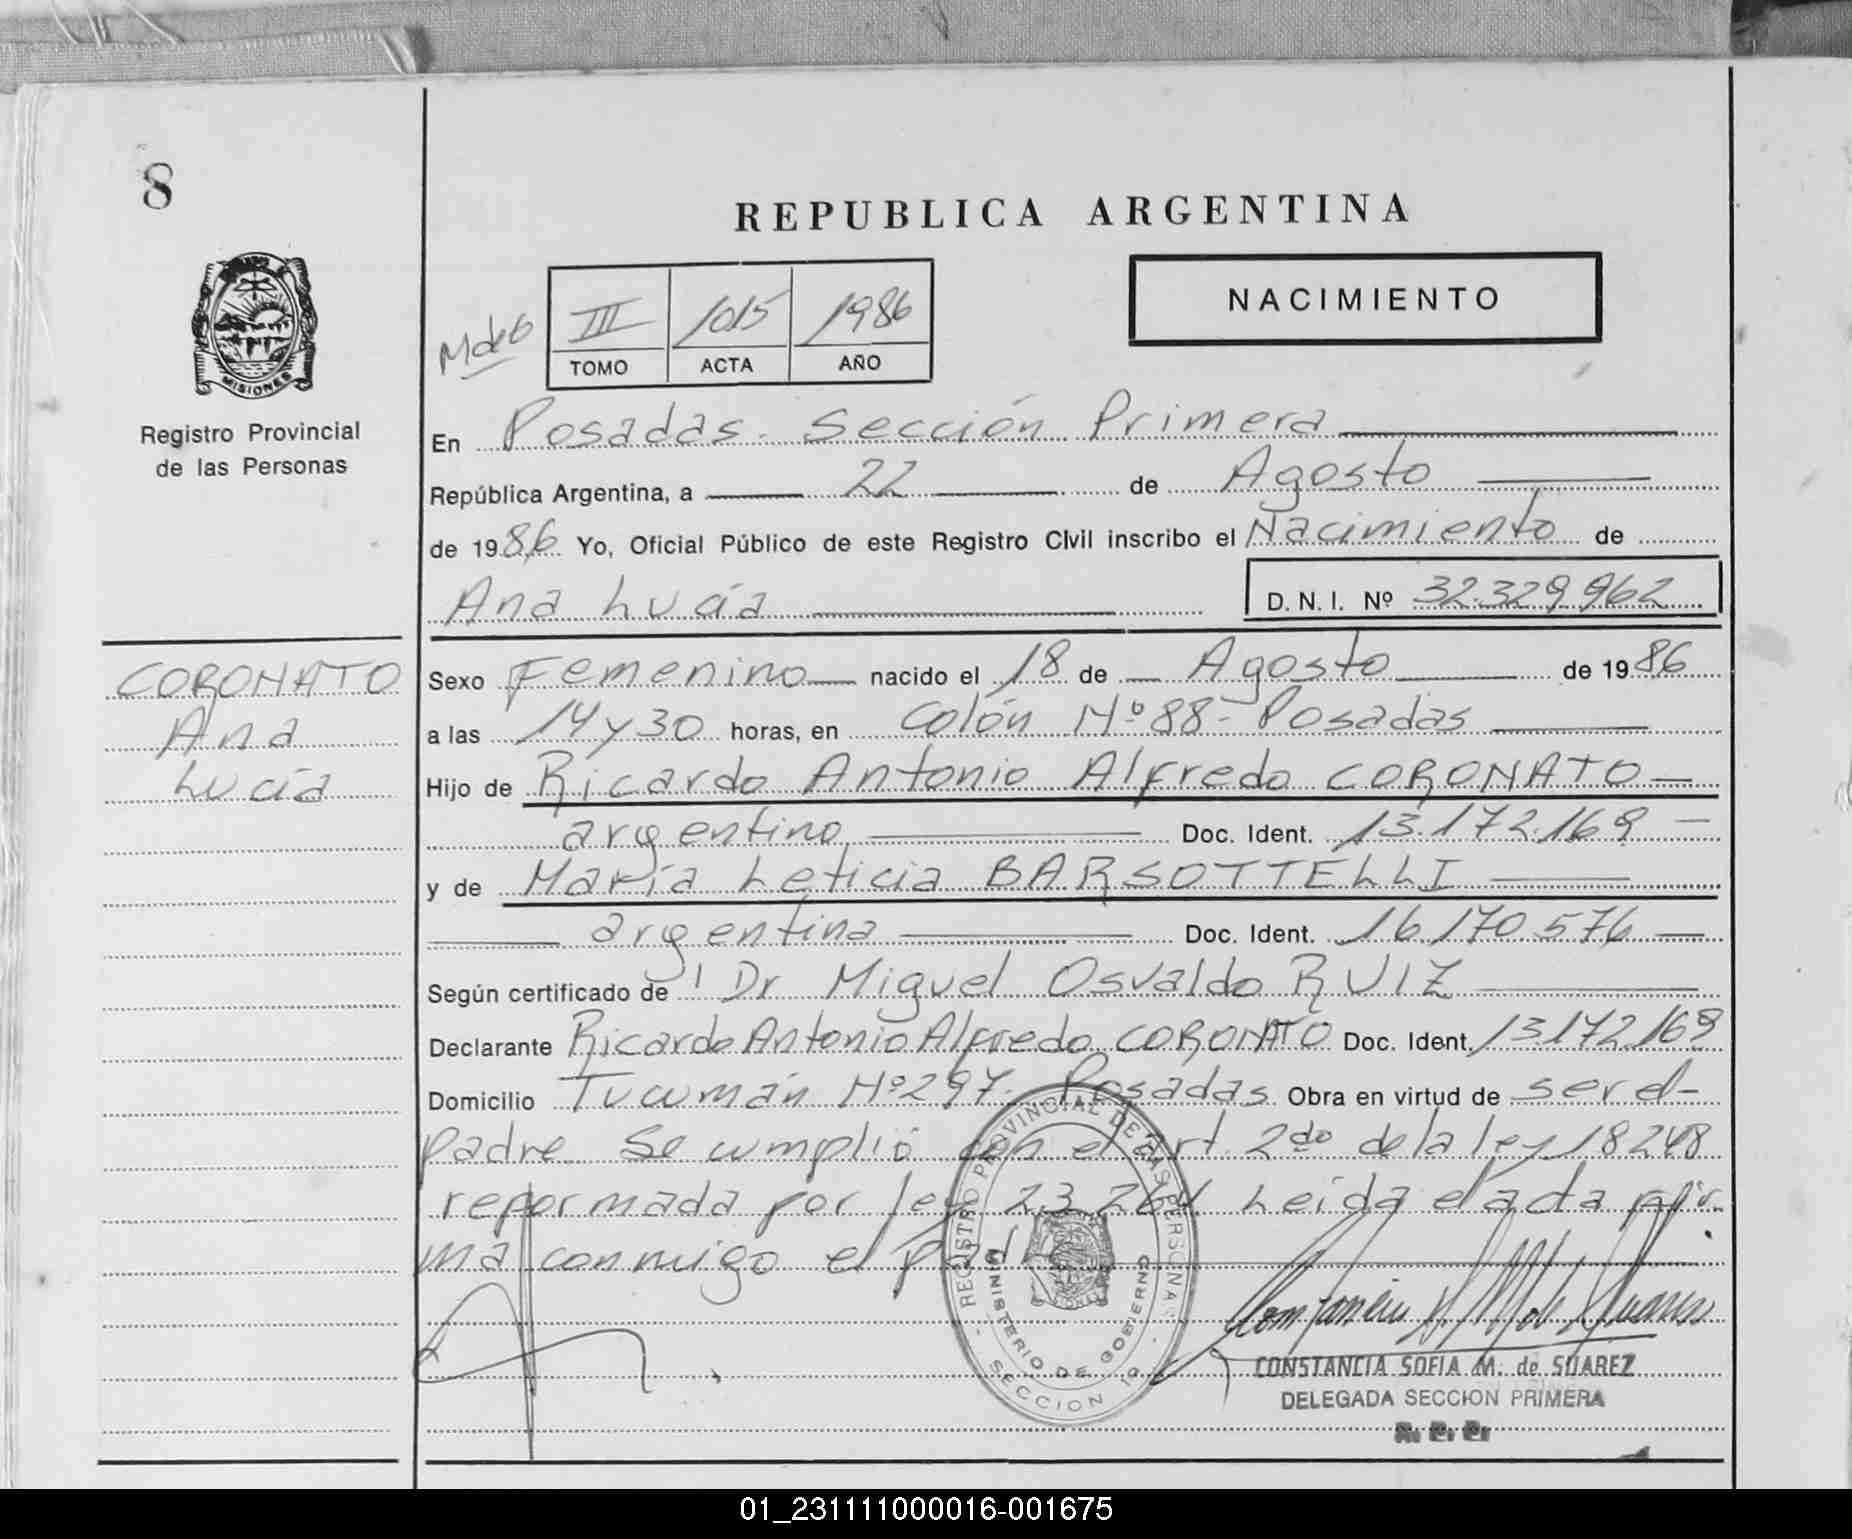 8
REPUBLICA ARGENTINA
MISIONES
Registro Provincial
de las Personas
III 1015 1986
TOMO ACTA AÑO
NACIMIENTO
En Posadas. Sección Primera
República Argentina, a 22 de Agosto
de 1986 Yo, Oficial Público de este Registro Civil inscribo el Nacimiento de
Ana Lucía D. N. I. Nº 32.329.962
CORONATO
Ana
Lucía
Sexo Femenino nacido el 18 de Agosto de 1986
a las 14 y 30 horas, en Colón Nº 88 - Posadas
Hijo de Ricardo Antonio Alfredo CORONATO
argentino Doc. Ident. 13.172.169
y de María Leticia BARSOTTELLI
argentina Doc. Ident. 16.170.576
Según certificado de Dr Miguel Osvaldo RUIZ
Declarante Ricardo Antonio Alfredo CORONATO Doc. Ident. 13.172.169
Domicilio Tucumán Nº 297. Posadas Obra en virtud de ser el
padre. Se cumplió con el art. 2do de la ley 18248
reformada por ley 23.264. Leída el acta fir-
ma conmigo el
REGISTRO PROVINCIAL DE LAS PERSONAS
MINISTERIO DE GOBIERNO
SECCION 1º
CONSTANCIA SOFIA M. de SUAREZ
DELEGADA SECCION PRIMERA
01_231111000016-001675